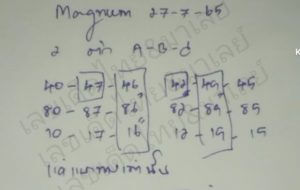 Magnum 27-7-65
2 ตัว A-B-C
40-47-46 42-49-45
80-87-86 82-89-85
10-17-16 12-19-15